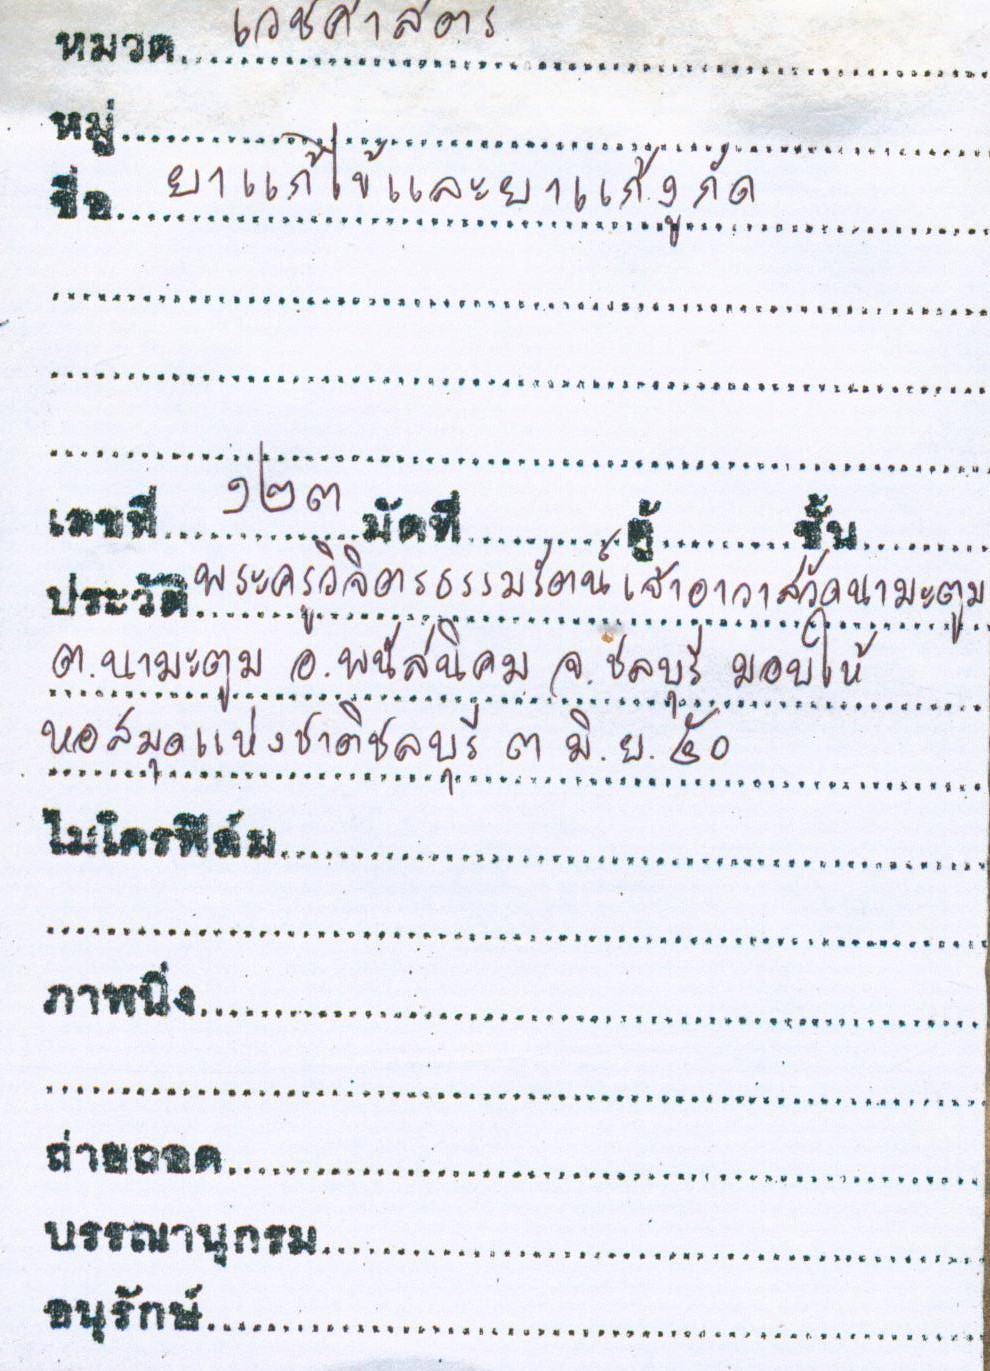 หมวด เวชศาสตร
หมู่
ชื่อ ยาแก้ไข้และยาแก้งูกัด
เลขที่ ๑๒๓ มัดที่ ตู้ ชั้น
ประวัติ พระครูวิจิตรธรรมรัตน์ เจ้าอาวาสวัดนามะตูม
ต.นามะตูม อ.พนัสนิคม จ.ชลบุรี มอบให้
หอสมุดแห่งชาติชลบุรี ๓ มิ.ย. ๕๐
ไมโครฟิล์ม
ภาพนิ่ง
ถ่ายถอด
บรรณานุกรม
อนุรักษ์